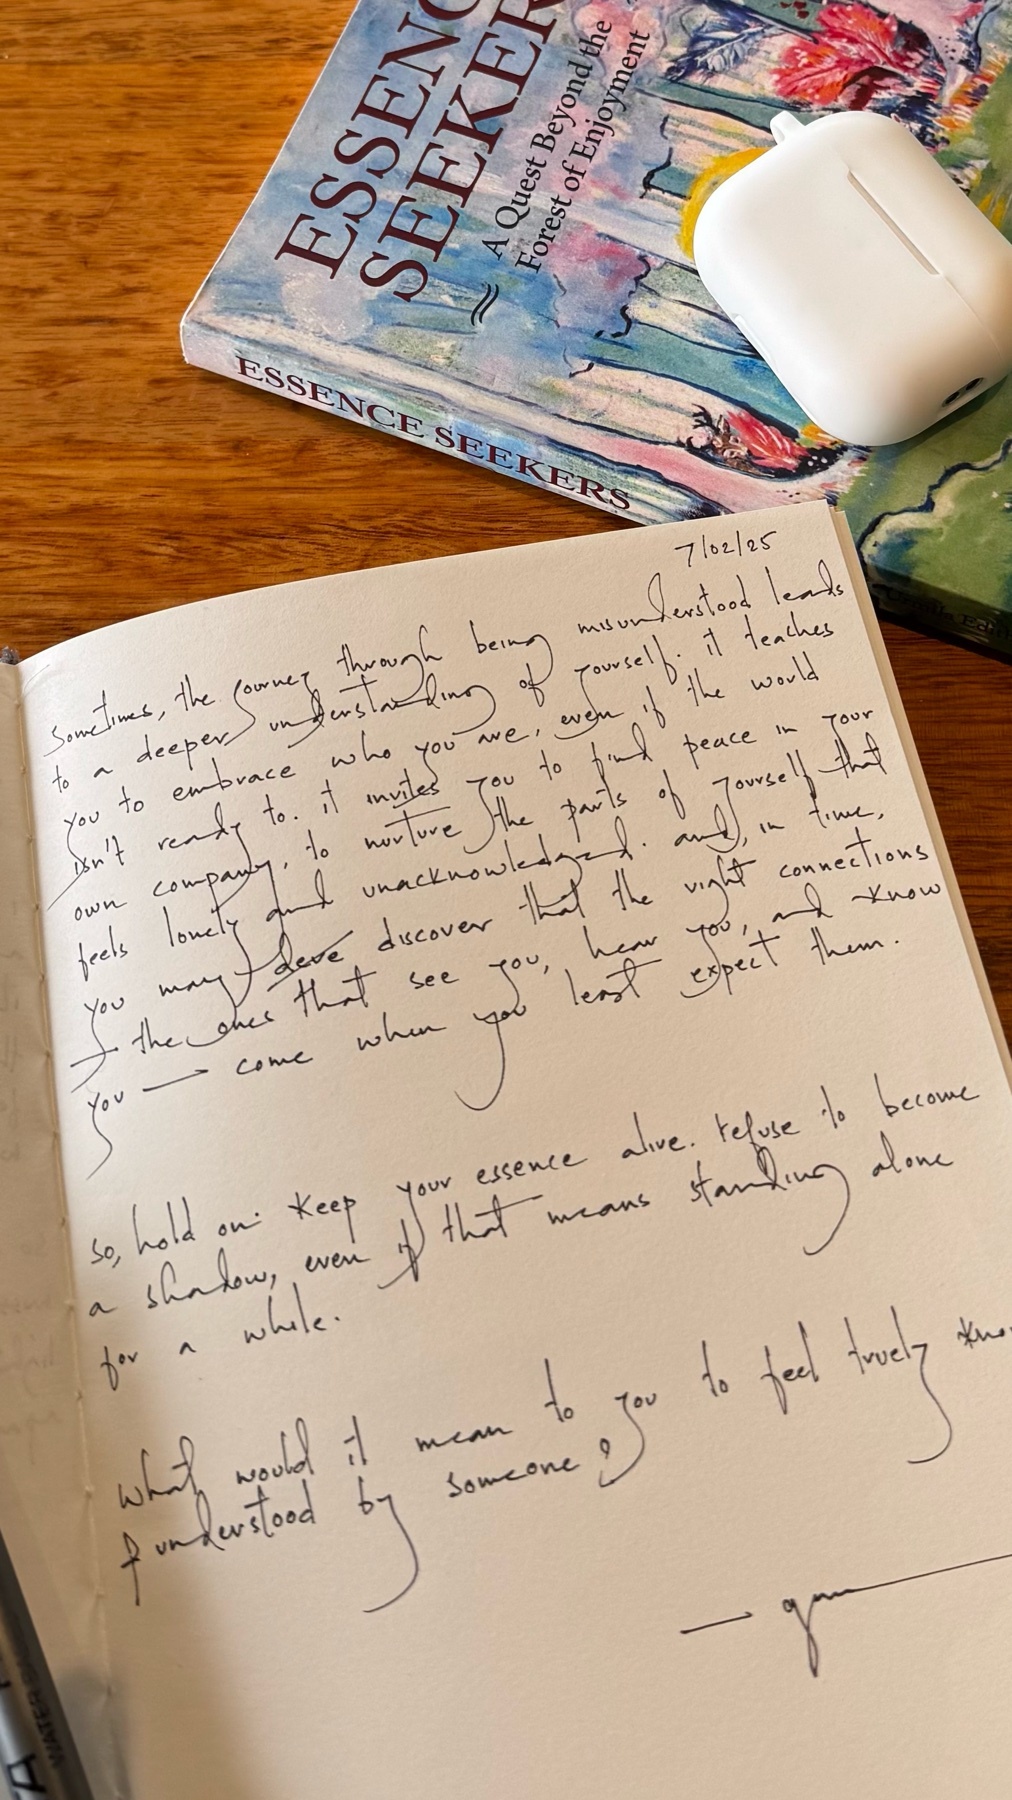 ESSENC
SEEKER
A Quest Beyond the
Forest of Enjoyment
ESSENCE SEEKERS
7/02/25
sometimes, the journey through being misunderstood leads
to a deeper understanding of yourself. it teaches
you to embrace who you are, even if the world
isn't ready to. it invites you to find peace in your
own company, to nurture the parts of yourself that
feels lonely and unacknowledged. and, in time,
you may discover that the right connections
— the ones that see you, hear you, and know
you — come when you least expect them.
so, hold on. keep your essence alive. refuse to become
a shadow, even if that means standing alone
for a while.
what would it mean to you to feel truely kno
& understood by someone?
WATER